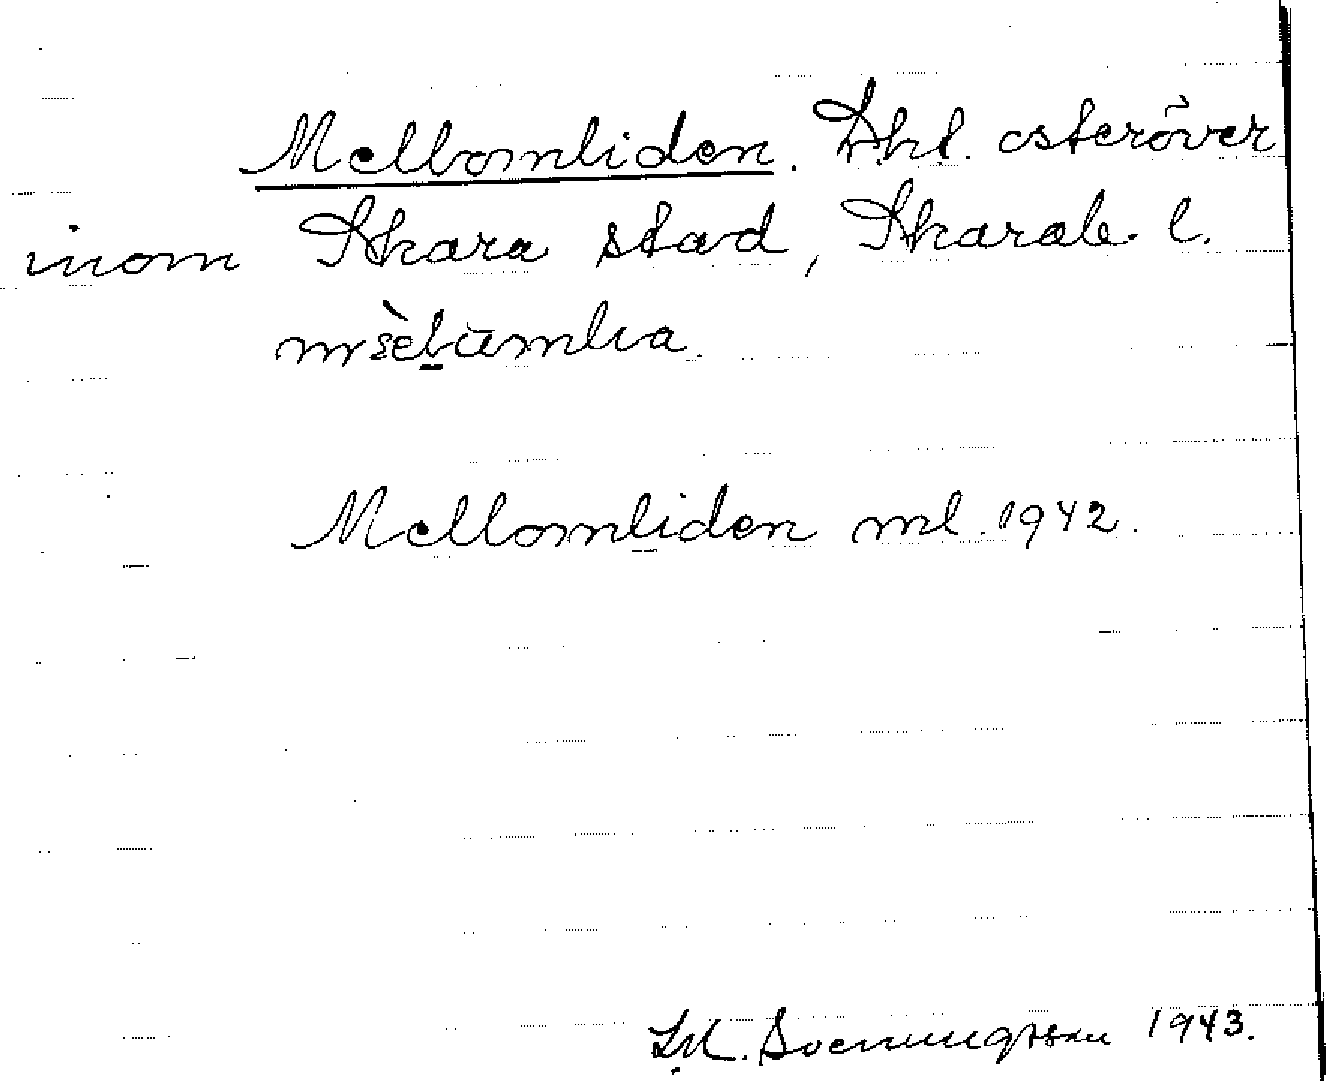 Mellomliden. Skl. österöver
inom Skara stad, Skarab. l.
Mellomliden ml. 1942.
M. Svenningsson 1943.